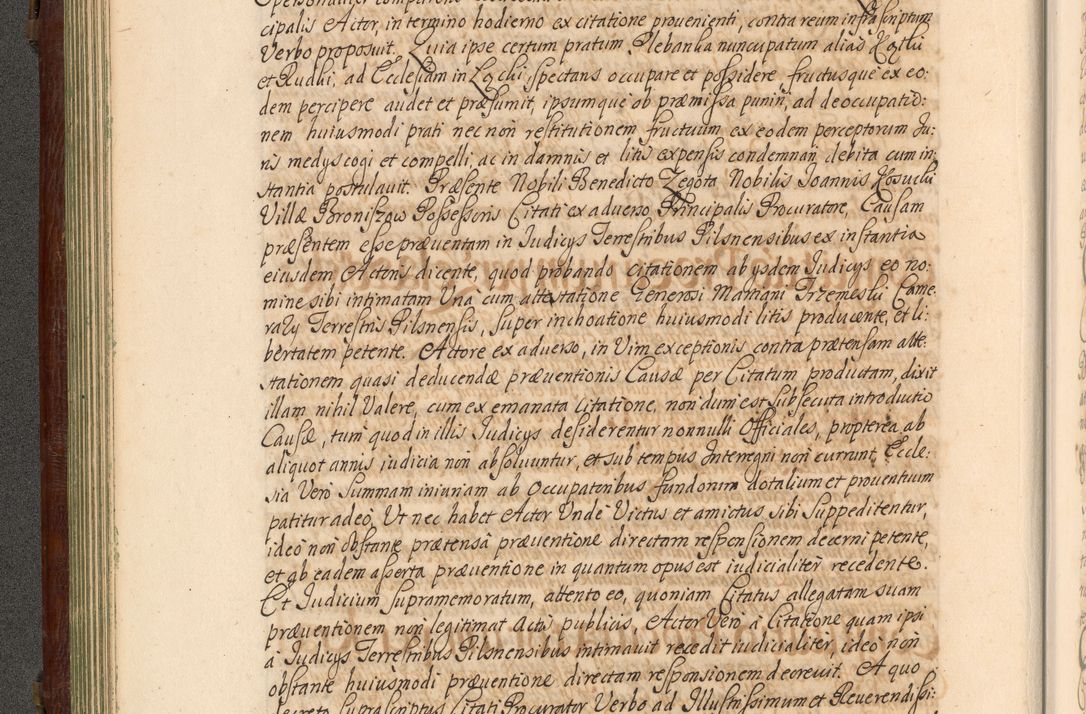 cipalis Actor, in termino hodierno ex citatione provenienti, contra reum infrascriptum
Verbo proposuit. Quia ipse certum pratum Plebanka nuncupatum alias
et Rudki, ad Ecclesiam in Łączki spectans occupare et possidere fructusque ex eo-
dem percipere audet et præsumit, ipsumque ob præmissa puniri, ad deoccupatio-
nem huiusmodi prati nec non restitutionem fructuum ex eodem perceptorum Ju-
ris medys cogi et compelli, ac in damnis et litis expensis condemnari debita cum in-
stantia postulauit. Præsente Nobili Benedicto Zegota Nobilis Joannis
Villæ Broniszow Possessoris Citati ex aduerso Principalis Procuratore, Causam
præsentem esse præuentam in Judicys Terrestribus Pilsnensibus ex instantia
eiusdem Actoris dicente, quod probando citationem ab ysdem Judicys eo no-
mine sibi intimatam Una cum attestatione Generosi Martini Trzemeski Came-
rary Terrestris Pilsnensis, super inchoatione huiusmodi litis producente, et li-
bertatem petente. Actore ex aduerso, in Vim exceptionis contra prætensam atte-
stationem quasi deducendæ præuentionis Causæ per Citatum productam, dixit
illam nihil Valere, cum ex emanata Citatione, non dum est subsecuta introductio
Causæ, tum quod in illis Judicys desiderentur nonnulli Officiales, propterea ab
aliquot annis iudicia non absoluuntur, et sub tempus Interregni non currunt, Eccle-
sia Vero Summam iniuriam ab Occupatoribus fundorum dotalium et prouentuum
patitur adeo, Ut nec habet Actor Unde Victus et amictus sibi suppeditentur,
ideo non obstante prætensa præuentione directam responsionem decerni petente,
et ab eadem asserta præuentione in quantum opus est iudicialiter recedente.
Et Judicium supramemoratum, attento eo, quoniam Citatus allegatam suam
præuentionem non legitimat Actis publicis, Actor Vero à Citatione quam ipsi
à Judicys Terrestribus Pilsnensibus intimauit recedit iudicialiter, ideo non
obstante huiusmodi præuentione directam responsionem decreuit. A quo
decreto suprascriptus Citati Procurator Verbo ad Illustrissimum et Reuerendissi-